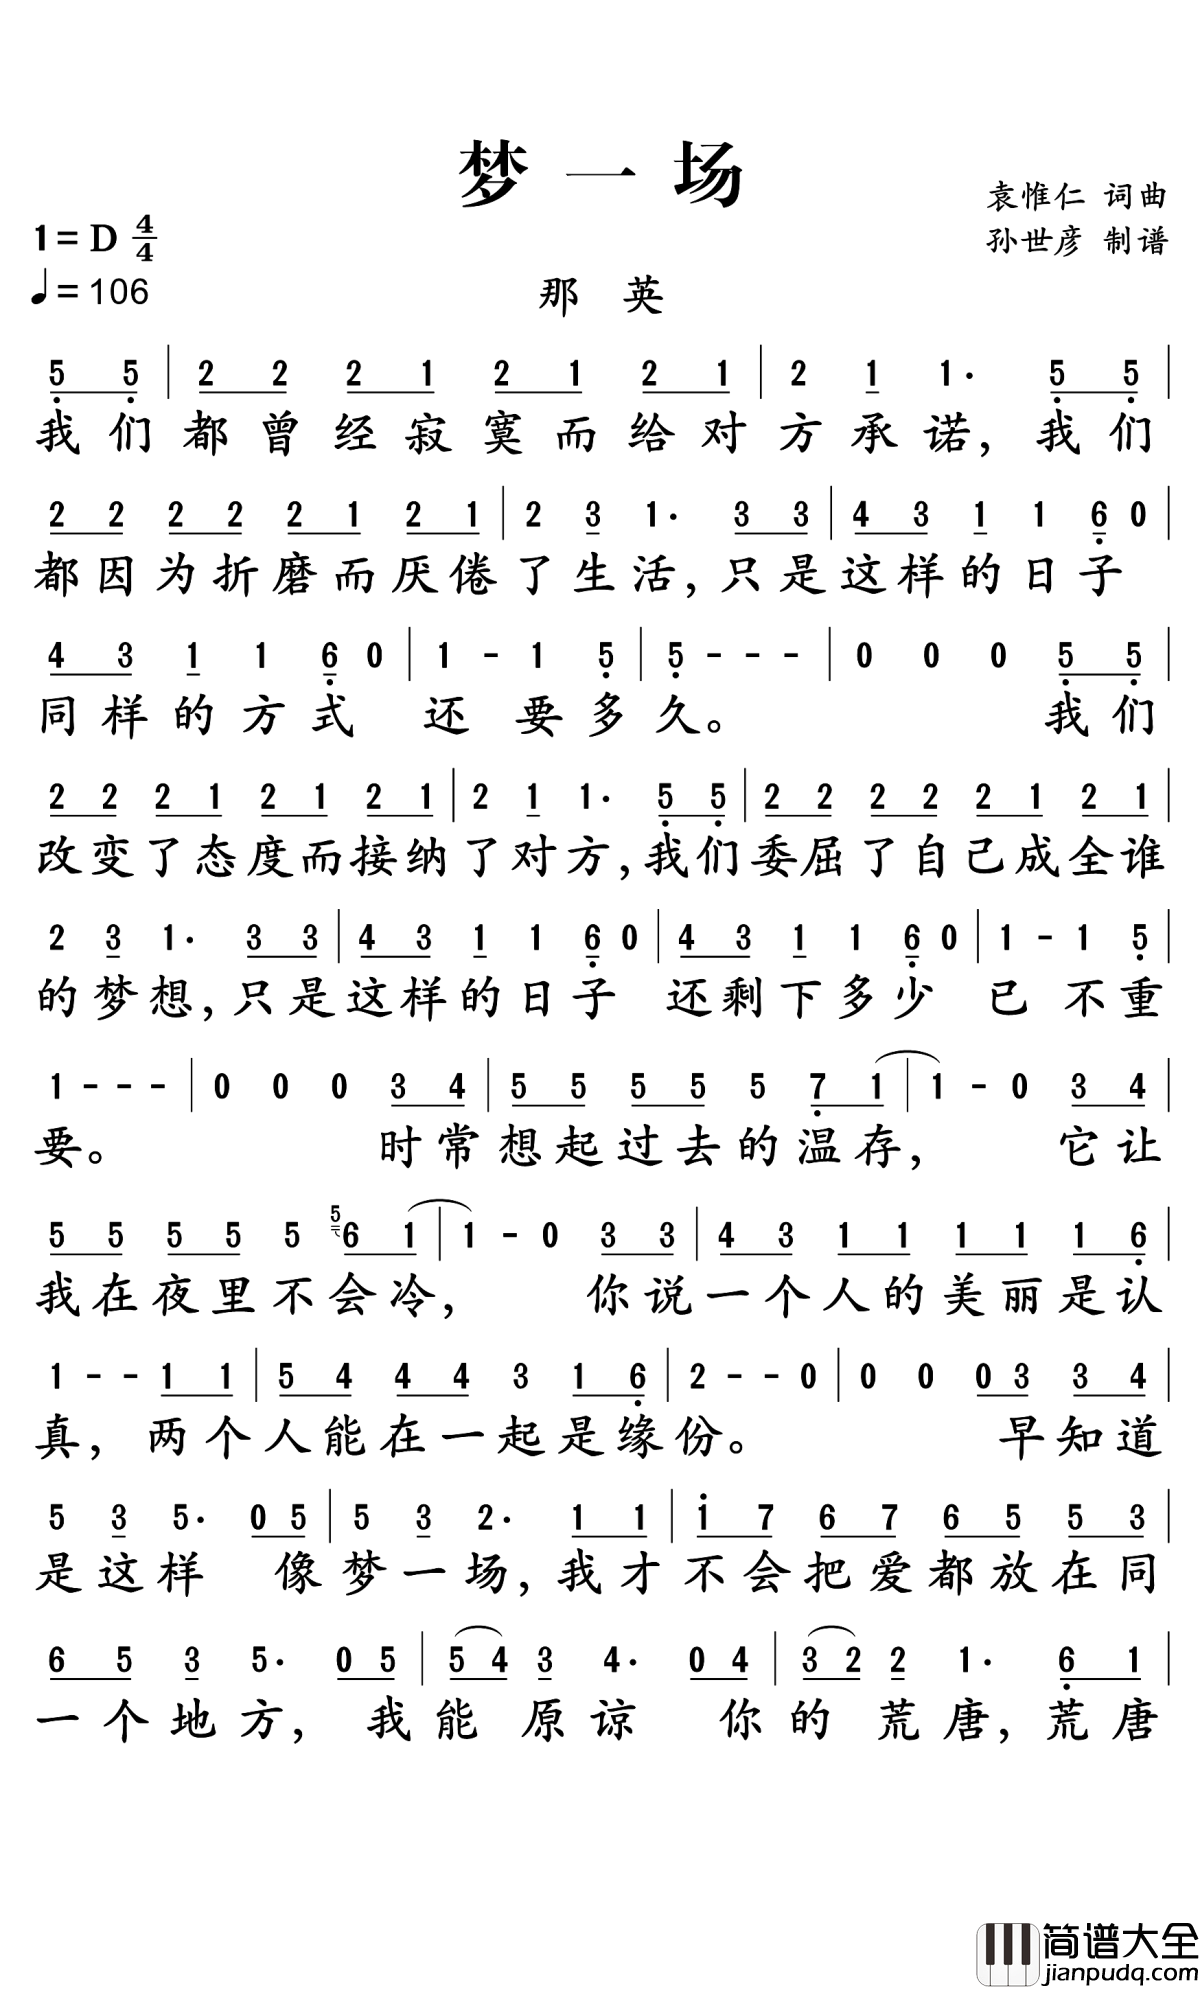 梦一场
袁惟仁 词曲
孙世彦 制谱
1=D 4/4
♩=106
那 英
5̣ 5̣ | 2 2 2 1 2 1 2 1 | 2 1 1· 5̣ 5̣ |
我们都曾经寂寞而给对方承诺,我们
2 2 2 2 2 1 2 1 | 2 3 1· 3 3 | 4 3 1 1 6̣ 0 |
都因为折磨而厌倦了生活,只是这样的日子
4 3 1 1 6̣ 0 | 1 - 1 5̣ | 5̣ - - - | 0 0 0 5̣ 5̣ |
同样的方式 还要多久。 我们
2 2 2 1 2 1 2 1 | 2 1 1· 5̣ 5̣ | 2 2 2 2 2 1 2 1 |
改变了态度而接纳了对方,我们委屈了自己成全谁
2 3 1· 3 3 | 4 3 1 1 6̣ 0 | 4 3 1 1 6̣ 0 | 1 - 1 5̣ |
的梦想,只是这样的日子 还剩下多少 已不重
1 - - - | 0 0 0 3 4 | 5 5 5 5 5 7̣ 1 | 1 - 0 3 4 |
要。 时常想起过去的温存, 它让
5 5 5 5 5 5 6 1 | 1 - 0 3 3 | 4 3 1 1 1 1 1 6̣ |
我在夜里不会冷, 你说一个人的美丽是认
1 - - 1 1 | 5 4 4 4 3 1 6̣ | 2 - - 0 | 0 0 0 3 3 4 |
真,两个人能在一起是缘份。 早知道
5 3 5· 0 5 | 5 3 2· 1 1 | 1̇ 7 6 7 6 5 5 3 |
是这样 像梦一场,我才不会把爱都放在同
6 5 3 5· 0 5 | 5 4 3 4· 0 4 | 3 2 2 1· 6̣ 1 |
一个地方, 我能原谅 你的荒唐,荒唐
简谱大全
jianpudq.com